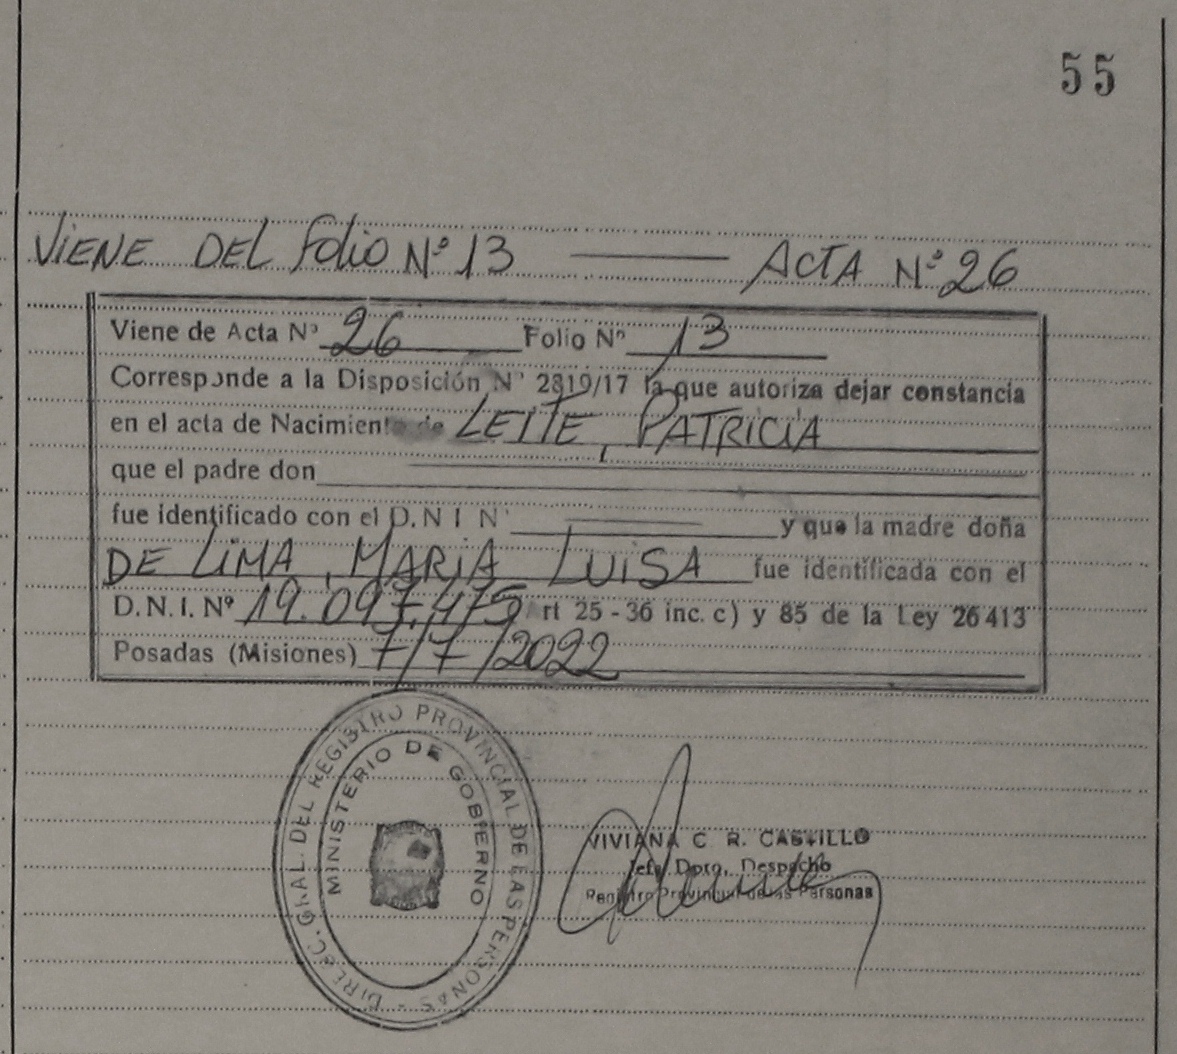 55
VIENE DEL folio Nº 13 ——— ACTA Nº 26
Viene de Acta Nº 26 Folio Nº 13
Corresponde a la Disposición Nº 2819/17 la que autoriza dejar constancia
en el acta de Nacimiento de LEITE, PATRICIA
que el padre don
fue identificado con el D.N I Nº y que la madre doña
DE LIMA, MARIA LUISA fue identificada con el
D.N.I. Nº 19.097.475 Art 25 - 36 inc. c) y 85 de la Ley 26413
Posadas (Misiones) 7/7/2022
DIREEC. GRAL. DEL REGISTRO PROVINCIAL DE LAS PERSONAS -
MINISTERIO DE GOBIERNO
VIVIANA C R. CASTILLO
Jefe Dpto. Despacho
Registro Provincial de las Personas